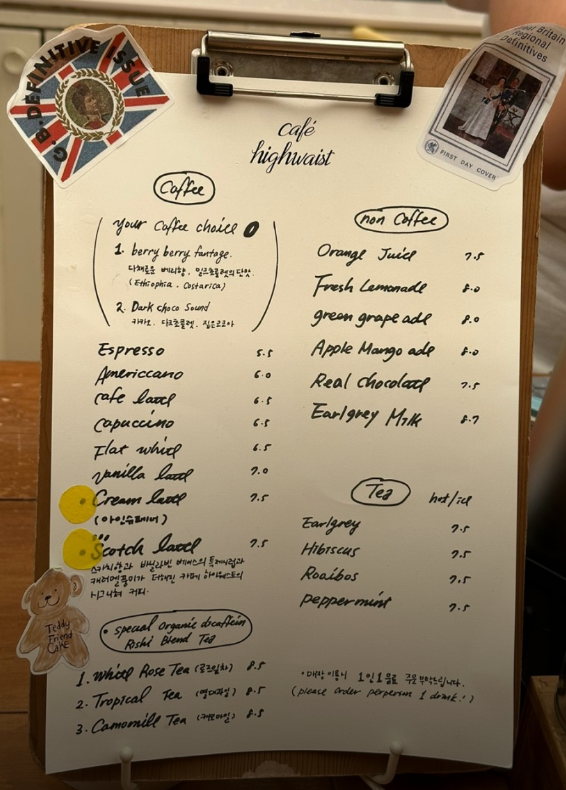 G.B. DEFINITIVE ISSUE
Great Britain
Regional
Definitives
FIRST DAY COVER
café
highwaist
Coffee
Your Coffee choice
1. berry berry fantage.
다채로운 베리향, 밀크초콜렛의 단맛.
(Ethiophia. Costarica)
2. Dark choco Sound
카카오, 다크초콜렛, 짙은코코아
Espresso 5.5
Americcano 6.0
cafe latte 6.5
Capuccino 6.5
Flat white 6.5
Vanilla latte 7.0
Cream latte 7.5
(아인슈페너)
Scotch latte 7.5
스카치향과 바닐라빈 베이스의
캐러멜풍미가 더해진 카페 하이웨스트의
시그니쳐 커피.
Teddy
Friend
Cafe
• special organic decaffein
Rishi Blend Tea
1. White Rose Tea 8.5
2. Tropical Tea 8.5
3. Camomill Tea (캐모마일) 8.5
non Coffee
Orange Juice 7.5
Fresh Lemonade 8.0
green grape ade 8.0
Apple Mango ade 8.0
Real Chocolate 7.5
Earlgrey Milk 8.7
Tea hot/ice
Earlgrey 7.5
Hibiscus 7.5
Rooibos 7.5
peppermint 7.5
• 매장 이용시 1인 1음료 주문부탁드립니다.
(please order perperson 1 drink!)